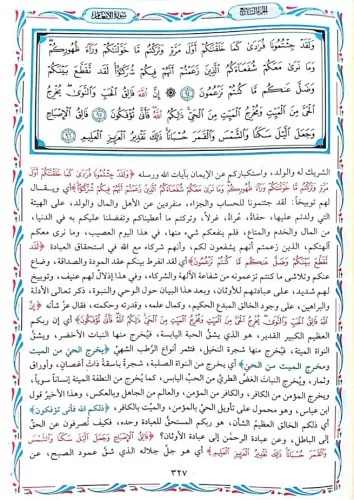 الجزء السابع
سورة الأنعام
وَلَقَدْ جِئْتُمُونَا فُرَادَىٰ كَمَا خَلَقْنَاكُمْ أَوَّلَ مَرَّةٍ وَتَرَكْتُم مَّا خَوَّلْنَاكُمْ وَرَاءَ ظُهُورِكُمْ
وَمَا نَرَىٰ مَعَكُمْ شُفَعَاءَكُمُ الَّذِينَ زَعَمْتُمْ أَنَّهُمْ فِيكُمْ شُرَكَاءُ لَقَد تَّقَطَّعَ بَيْنَكُمْ
وَضَلَّ عَنكُم مَّا كُنتُمْ تَزْعُمُونَ ﴿٩٤﴾ إِنَّ اللَّهَ فَالِقُ الْحَبِّ وَالنَّوَىٰ يُخْرِجُ
الْحَيَّ مِنَ الْمَيِّتِ وَمُخْرِجُ الْمَيِّتِ مِنَ الْحَيِّ ذَٰلِكُمُ اللَّهُ فَأَنَّىٰ تُؤْفَكُونَ ﴿٩٥﴾ فَالِقُ الْإِصْبَاحِ
وَجَعَلَ اللَّيْلَ سَكَنًا وَالشَّمْسَ وَالْقَمَرَ حُسْبَانًا ذَٰلِكَ تَقْدِيرُ الْعَزِيزِ الْعَلِيمِ ﴿٩٦﴾
الشريك له والولد، واستكباركم عن الإيمان بآيات الله ورسله ﴿وَلَقَدْ جِئْتُمُونَا فُرَادَىٰ كَمَا خَلَقْنَاكُمْ أَوَّلَ
مَرَّةٍ وَتَرَكْتُم مَّا خَوَّلْنَاكُمْ وَرَاءَ ظُهُورِكُمْ وَمَا نَرَىٰ مَعَكُمْ شُفَعَاءَكُمُ الَّذِينَ زَعَمْتُمْ أَنَّهُمْ فِيكُمْ شُرَكَاءُ﴾ أي ويقال
لهم توبيخاً: لقد جئتمونا للحساب والجزاء، منفردين عن الأهل والمال والولد، على الهيئة
التي ولدتم عليها، حفاةً، عُراةً، غرلاً، وتركتم ما أعطيناكم وتفضلنا عليكم به في الدنيا،
من المال والخدم والمتاع، فلم ينفعكم شيء منها، في هذا اليوم العصيب، وما نرى معكم
آلهتكم، الذين زعمتم أنهم يشفعون لكم، وأنهم شركاء مع الله في استحقاق العبادة ﴿لَقَد
تَّقَطَّعَ بَيْنَكُمْ وَضَلَّ عَنكُم مَّا كُنتُمْ تَزْعُمُونَ﴾ أي لقد انفرط بينكم عقد المودة والصداقة، وضاع
عنكم وتلاشى ما كنتم تزعمونه من شفاعة الآلهة والشركاء، وفي هذا إذلالٌ لهم عنيف، وتوبيخ
لهم شديد، على عبادتهم للأوثان، وبعد هذا البيان حول الوحي والنبوة، ذكر تعالى الأدلة
والبراهين، على وجود الخالق المبدع الحكيم، وكمال علمه، وقدرته وحكمته، فقال عزَّ شأنه ﴿إِنَّ
اللَّهَ فَالِقُ الْحَبِّ وَالنَّوَىٰ يُخْرِجُ الْحَيَّ مِنَ الْمَيِّتِ وَمُخْرِجُ الْمَيِّتِ مِنَ الْحَيِّ ذَٰلِكُمُ اللَّهُ فَأَنَّىٰ تُؤْفَكُونَ﴾ أي إن ربكم
العظيم الكبير القدير، هو الذي يشقُّ الحبة اليابسة، فيُخرج منها النبات الأخضر، ويشقُّ
النواة الميتة، فيُخرج منها شجرة النخيل، فتثمر أنواع الرُّطب الشهيِّ ﴿يخرج الحيَّ من الميت
ومخرج الميت من الحيِّ﴾ أي يخرج من النواة الصلبة، شجرةً باسقة ذاتَ أغصانٍ، وأوراق
وثمار، ويُخرج النبات الغضَّ الطريَّ من الحبِّ اليابس، كما يُخرج من النطفة الميتة إنساناً سوياً،
ويخرج المؤمن من الكافر، والكافر من المؤمن، والعالم من الجاهل وبالعكس، وهذا الأخير قول
ابن عباس، وهو محمول على تأويل الحيِّ بالمؤمن، والميِّت بالكافر، ﴿ذلكم الله فأنى تؤفكون﴾
أي ذلكم الخالق العظيمُ الشأن، هو ربكم المستحقُّ للعبادة وحده، فكيف تُصرفون عن الحق
إلى الباطل، وعن عبادة الرحمٰن إلى عبادة الأوثان؟ ﴿فَالِقُ الْإِصْبَاحِ وَجَعَلَ اللَّيْلَ سَكَنًا وَالشَّمْسَ
وَالْقَمَرَ حُسْبَانًا ذَٰلِكَ تَقْدِيرُ الْعَزِيزِ الْعَلِيمِ﴾ أي هو جلَّ جلاله الذي شقَّ عمود الصبح، عن
٣٢٧